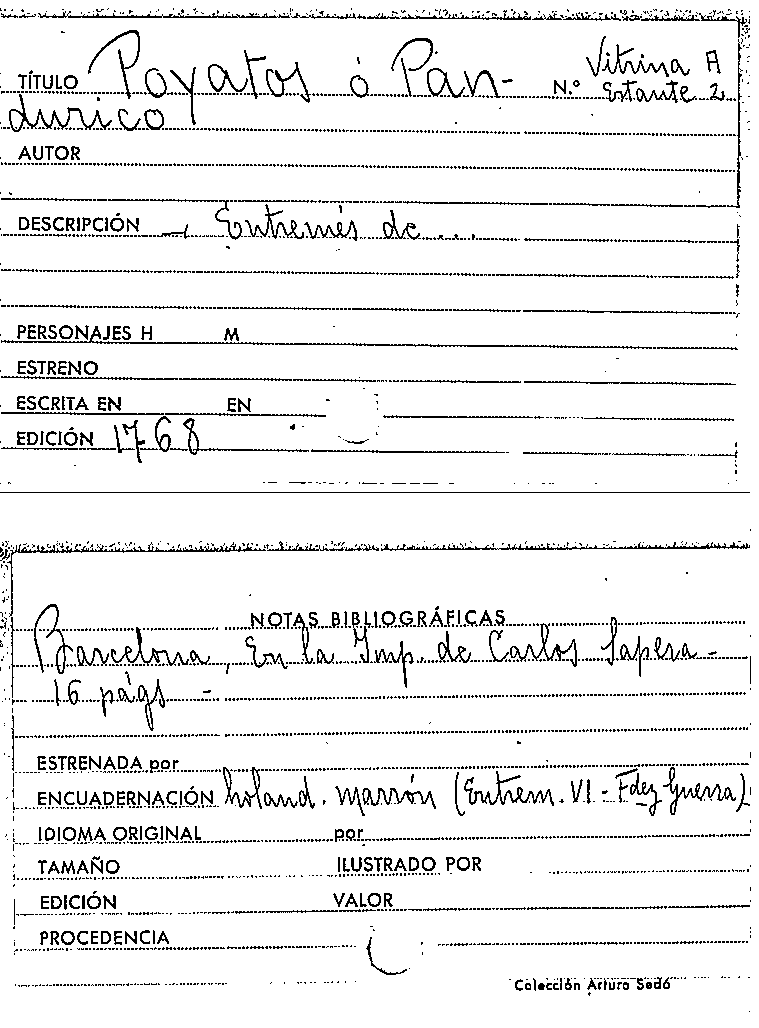 TÍTULO Poyatos ó Pan- N.º Vitrina A
Estante 2
durico
AUTOR
DESCRIPCIÓN -, Entremés de ...
PERSONAJES H M
ESTRENO
ESCRITA EN EN
EDICIÓN 1768
NOTAS BIBLIOGRÁFICAS
Barcelona, En la Imp. de Carlos Sapera -
16 págs -
ESTRENADA por
ENCUADERNACIÓN holand. marrón (Entrem. VI - Fdez Guerra)
IDIOMA ORIGINAL por
TAMAÑO ILUSTRADO POR
EDICIÓN VALOR
PROCEDENCIA
Colección Arturo Sedó